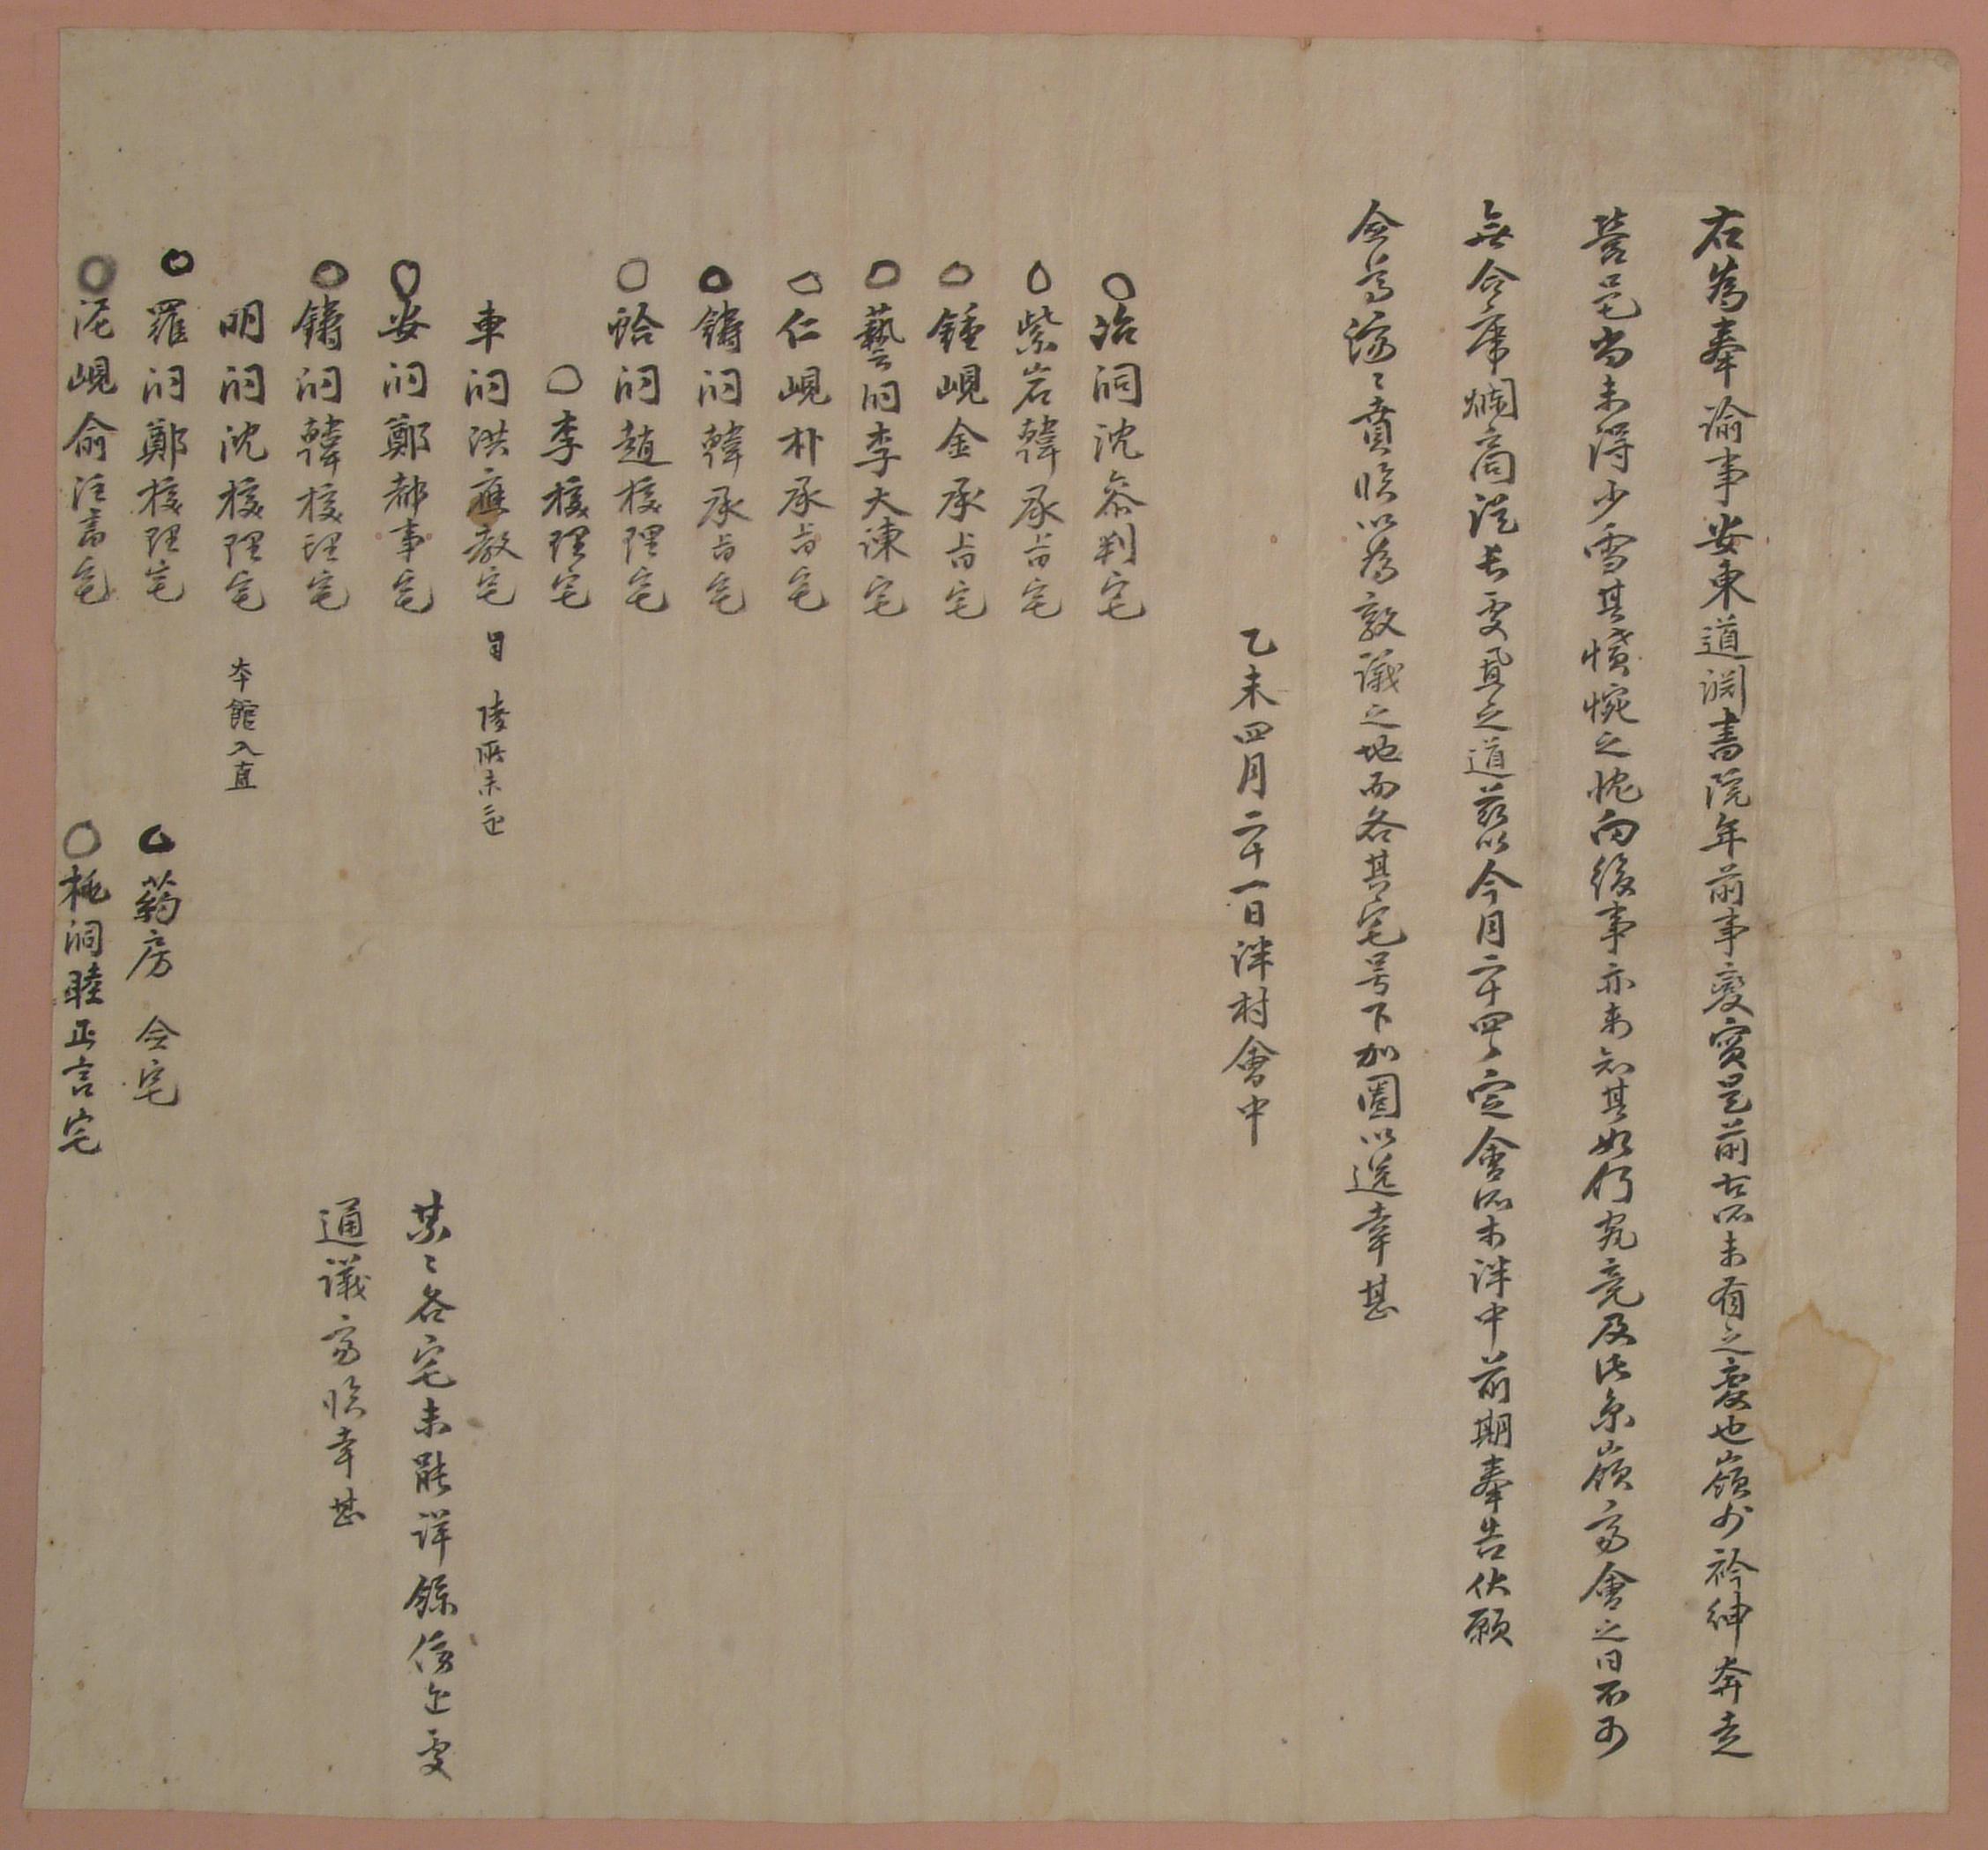 右爲奉諭事安東道淵書院年前事變實是前古所未有之變也嶺外衿紳奔走
營邑尚未得少雪其憤惋之忱向後事亦未知其如何究竟及此京嶺齊會之日不可
無合席爛商從長更員之道玆以今月二十四日定會所于泮中前期奉告伏願
僉尊濟〻賁臨以爲敦議之地而各其宅号下加圈以送幸甚
乙未四月二十一日泮村會中
○冶洞沈參判宅
○紫岩韓承旨宅
○鍾峴金承旨宅
○藝洞李大諫宅
○仁峴朴承旨宅
○鑄洞韓承旨宅
○蛤洞趙校理宅
○李校理宅
車洞洪應教宅 陵所未還
○安洞鄭都事宅
○鑄洞韓校理宅
明洞沈校理宅 本館入直
○羅洞鄭校理宅
○泥峴俞注書宅
○藥房 僉宅
○桃洞睦正言宅
某〻各宅未能詳錄傍近處
通議齊臨幸甚